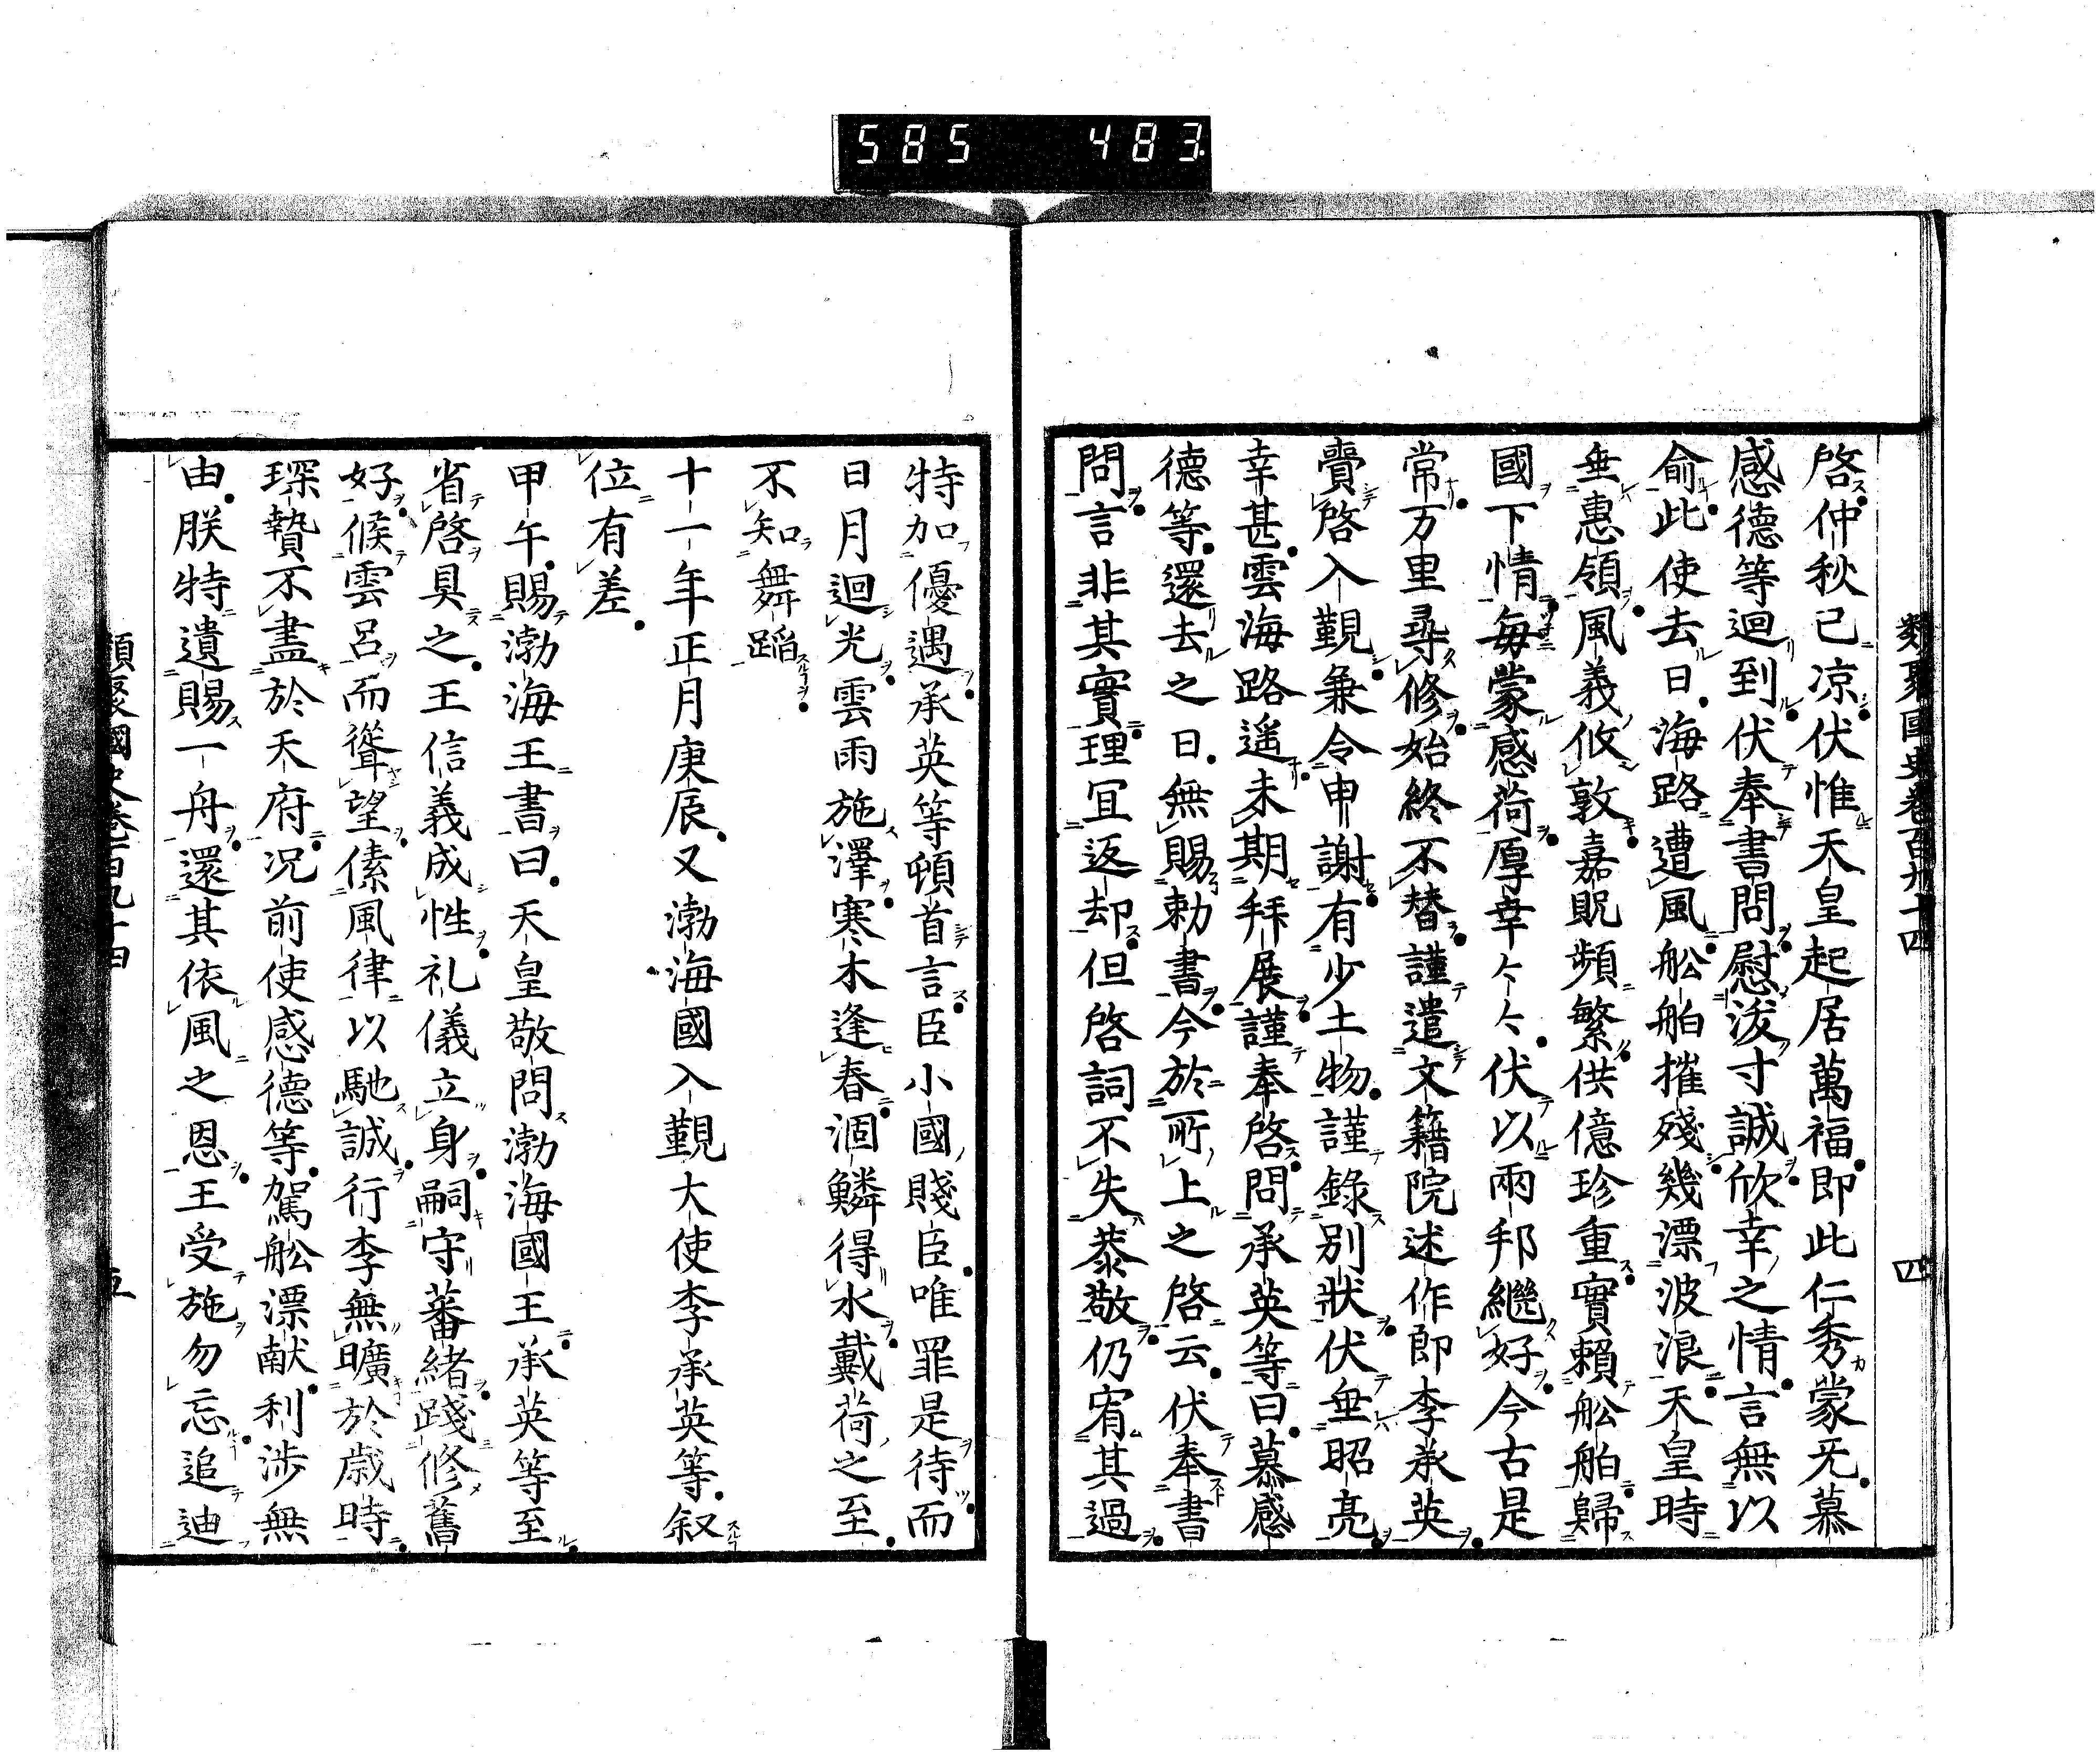 585 483
類聚國史卷百九十四 四
啓仲秋已凉伏惟天皇起居萬福即此仁秀蒙无慕
感德等迴到伏奉書問慰浚寸誠欣幸之情言無以
俞此使去日海路遭風舩舶摧殘幾漂波浪天皇時
垂惠領風義攸敦嘉貺頻繁供億珍重實賴舩舶歸
國下情每蒙感荷厚幸々々伏以兩邦繼好今古是
常万里尋修始終不替謹遣文籍院述作郎李承英
賷啓入覲兼令申謝有少土物謹錄別狀伏垂昭亮
幸甚雲海路遥未期拜展謹奉啓問承英等曰慕感
德等還去之日無賜勅書今於所上之啓云伏奉書
問言非其實理冝返却但啓詞不失恭敬仍宥其過
特加優遇承英等頓首言臣小國賤臣唯罪是待而
日月迴光雲雨施澤寒木逢春涸鱗得水戴荷之至
不知舞蹈
十一年正月庚辰又渤海國入覲大使李承英等叙
位有差
甲午賜渤海王書曰天皇敬問渤海國王承英等至
省啓具之王信義成性礼儀立身嗣守蕃緒踐修舊
好候雲呂而聳望傃風律以馳誠行李無曠於歲時
琛贄不盡於天府况前使感德等駕舩漂献利涉無
由朕特遣賜一舟還其依風之恩王受施勿忘追迪
類聚國史卷百九十四 五